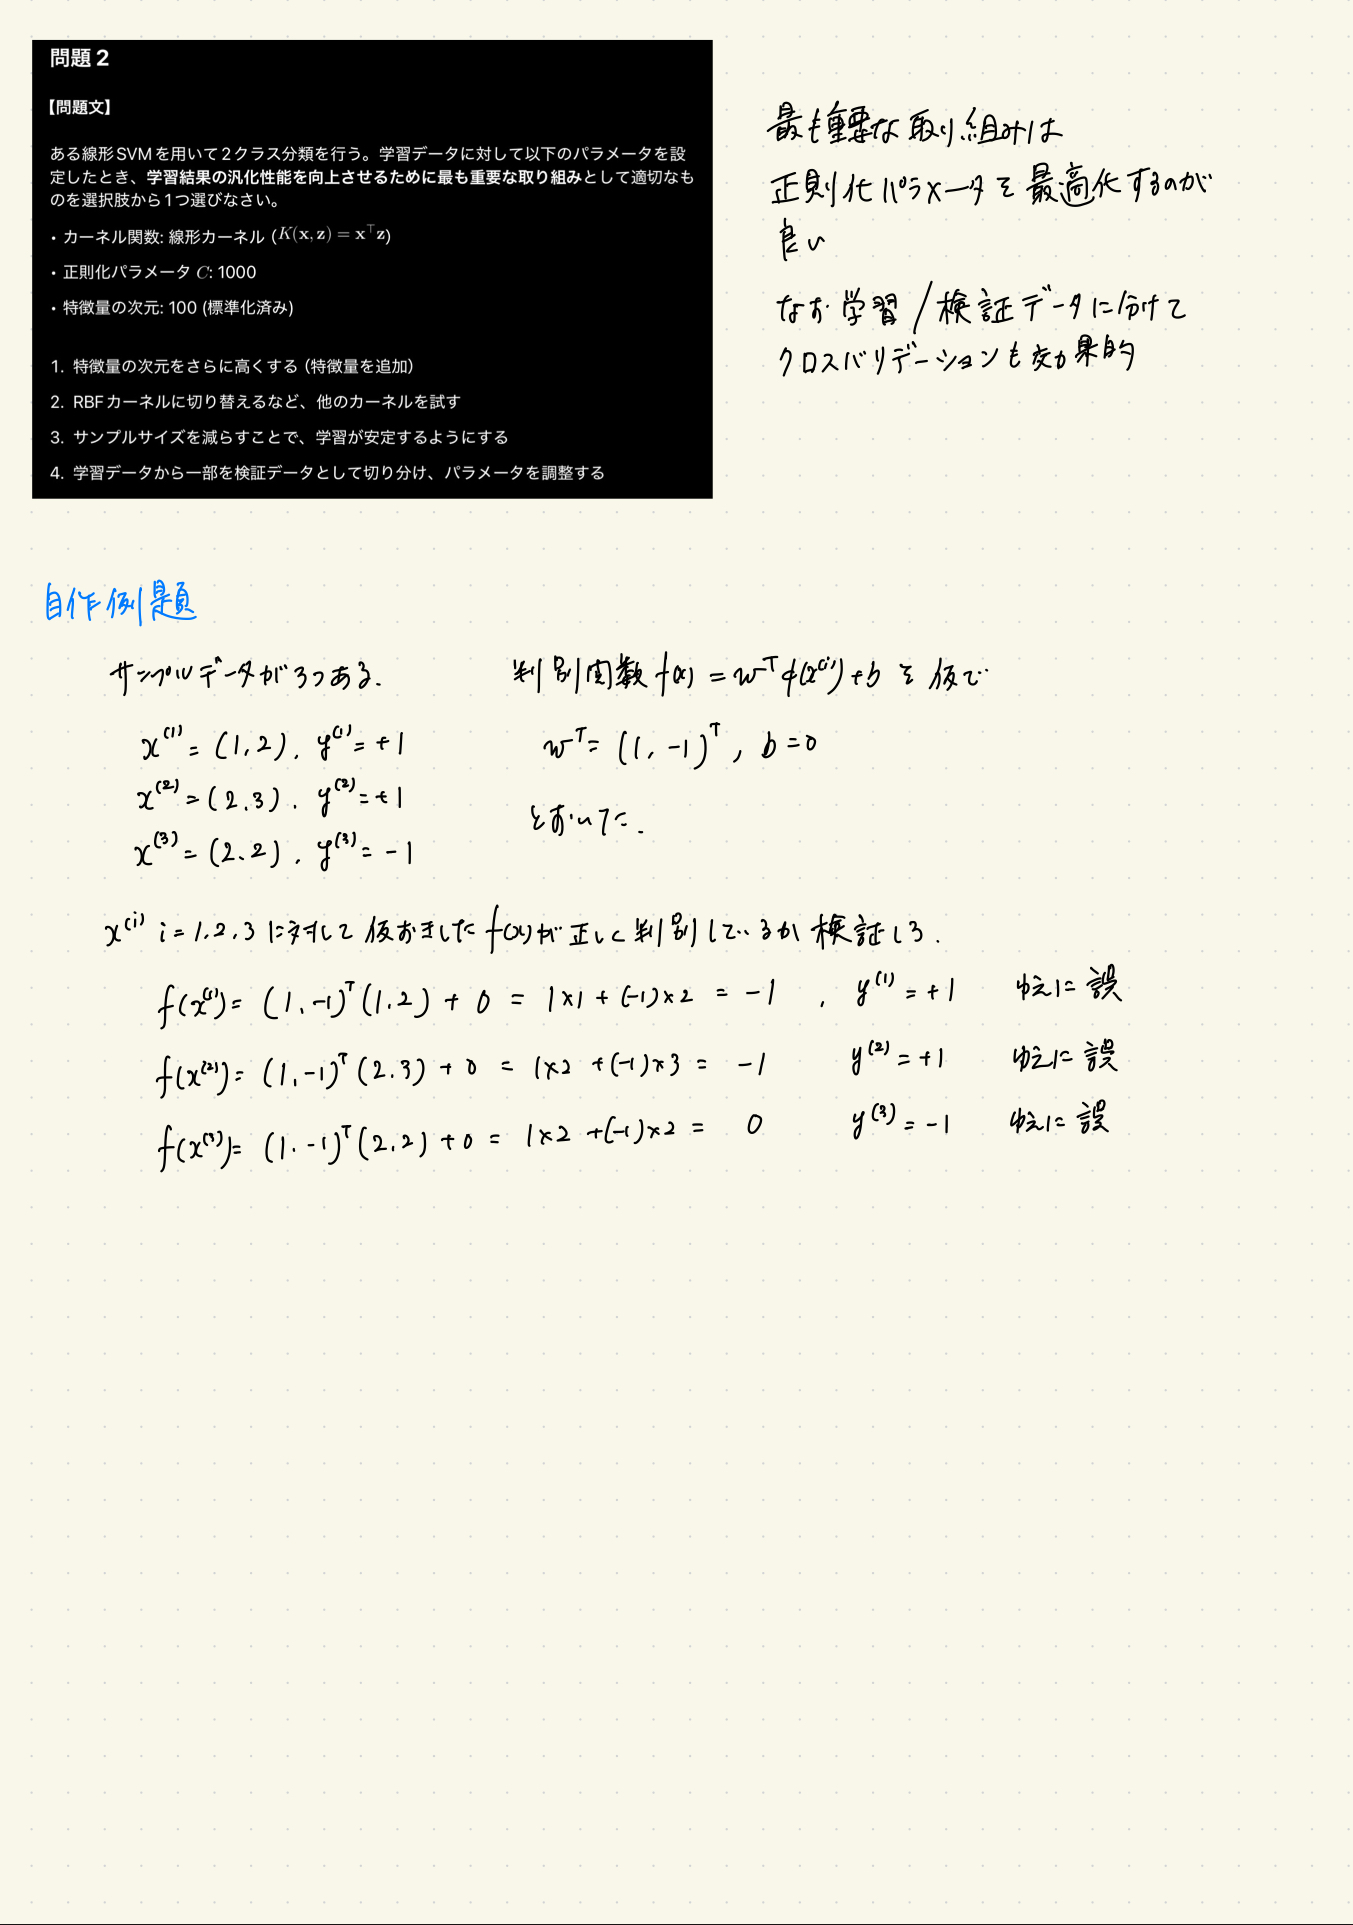 問題 2
【問題文】
ある線形SVMを用いて2クラス分類を行う。学習データに対して以下のパラメータを設
定したとき、学習結果の汎化性能を向上させるために最も重要な取り組みとして適切なも
のを選択肢から1つ選びなさい。
・カーネル関数: 線形カーネル (K(x, z) = x⊤z)
・正則化パラメータ C: 1000
・特徴量の次元: 100 (標準化済み)
1. 特徴量の次元をさらに高くする (特徴量を追加)
2. RBFカーネルに切り替えるなど、他のカーネルを試す
3. サンプルサイズを減らすことで、学習が安定するようにする
4. 学習データから一部を検証データとして切り分け、パラメータを調整する
最も重要な取り組みは
正則化パラメータを最適化するのが
良い
なお学習/検証データに分けて
クロスバリデーションも効果的
自作例題
サンプルデータが3つある.
x⁽¹⁾ = (1, 2), y⁽¹⁾ = +1
x⁽²⁾ = (2, 3), y⁽²⁾ = +1
x⁽³⁾ = (2, 2), y⁽³⁾ = -1
判別関数 f(x) = wᵀφ(x⁽ⁱ⁾) + b を仮で
wᵀ = (1, -1)ᵀ, b = 0
とおいてた.
x⁽ⁱ⁾ i = 1, 2, 3 に対して仮おきした f(x)が正しく判別しているか検証しろ.
f(x⁽¹⁾) = (1, -1)ᵀ(1, 2) + 0 = 1×1 + (-1)×2 = -1 , y⁽¹⁾ = +1 ゆえに誤
f(x⁽²⁾) = (1, -1)ᵀ(2, 3) + 0 = 1×2 + (-1)×3 = -1 y⁽²⁾ = +1 ゆえに誤
f(x⁽³⁾) = (1, -1)ᵀ(2, 2) + 0 = 1×2 + (-1)×2 = 0 y⁽³⁾ = -1 ゆえに誤